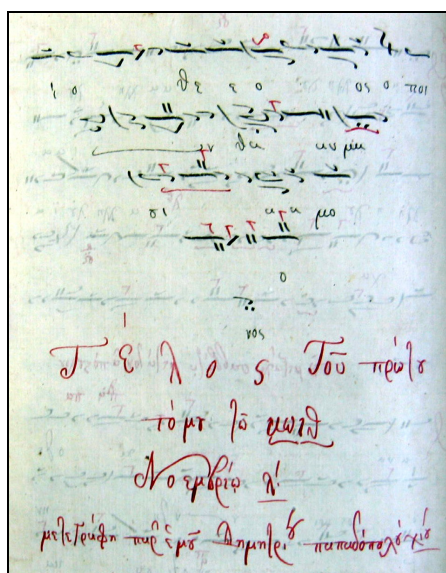 ι ο θε ε ο ος ο ποι
ων θα αυ μα
σι α α μο
ο
νος
Τέλος Τοῦ πρώτου
τόμου τῷ αωπθ
Νοεμβρίῳ λ΄
μετεγράφη παρ' ἐμοῦ Δημητρίου παπαδοπούλου χίου